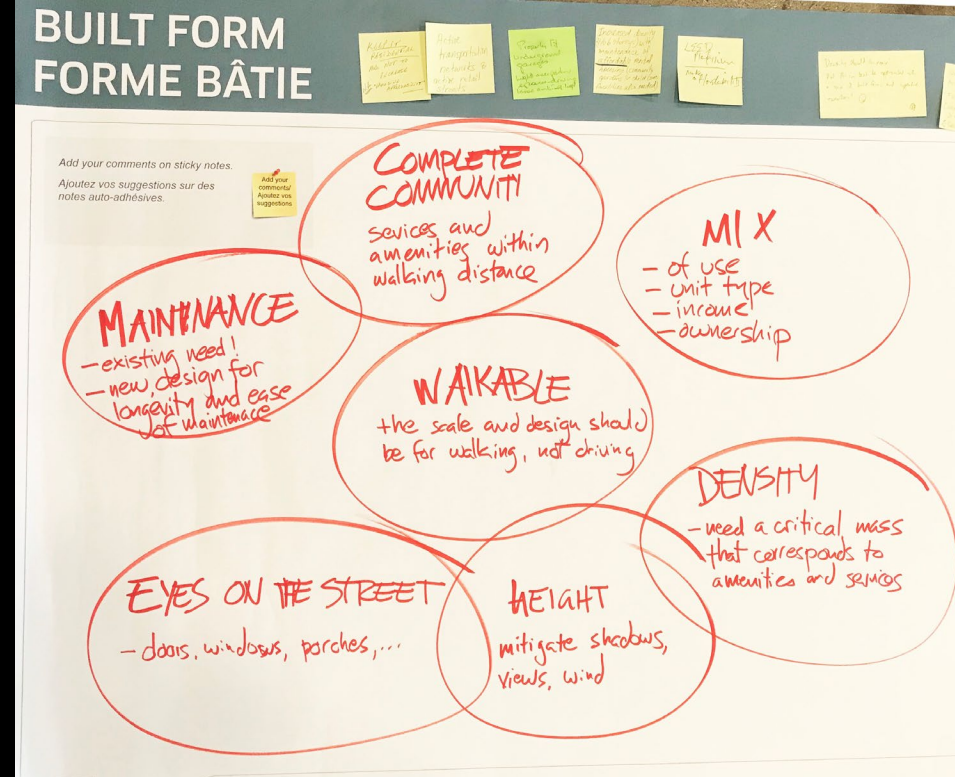 BUILT FORM
FORME BÂTIE
Add your comments on sticky notes.
Ajoutez vos suggestions sur des
notes auto-adhésives.
Add your
comments/
Ajoutez vos
suggestions
COMPLETE
COMMUNITI
sevices and
amenities within
walking distance
MIX
- of use
- unit type
- income
- ownership
MAINTINANCE
- existing need!
- new, design for
longevity and ease
of maintenace
WALKABLE
the scale and design should
be for walking, not driving
DENSITY
- need a critical mass
that corresponds to
amenities and services
EYES ON THE STREET
- doors, windows, porches,...
HEIGHT
mitigate shadows,
views, wind